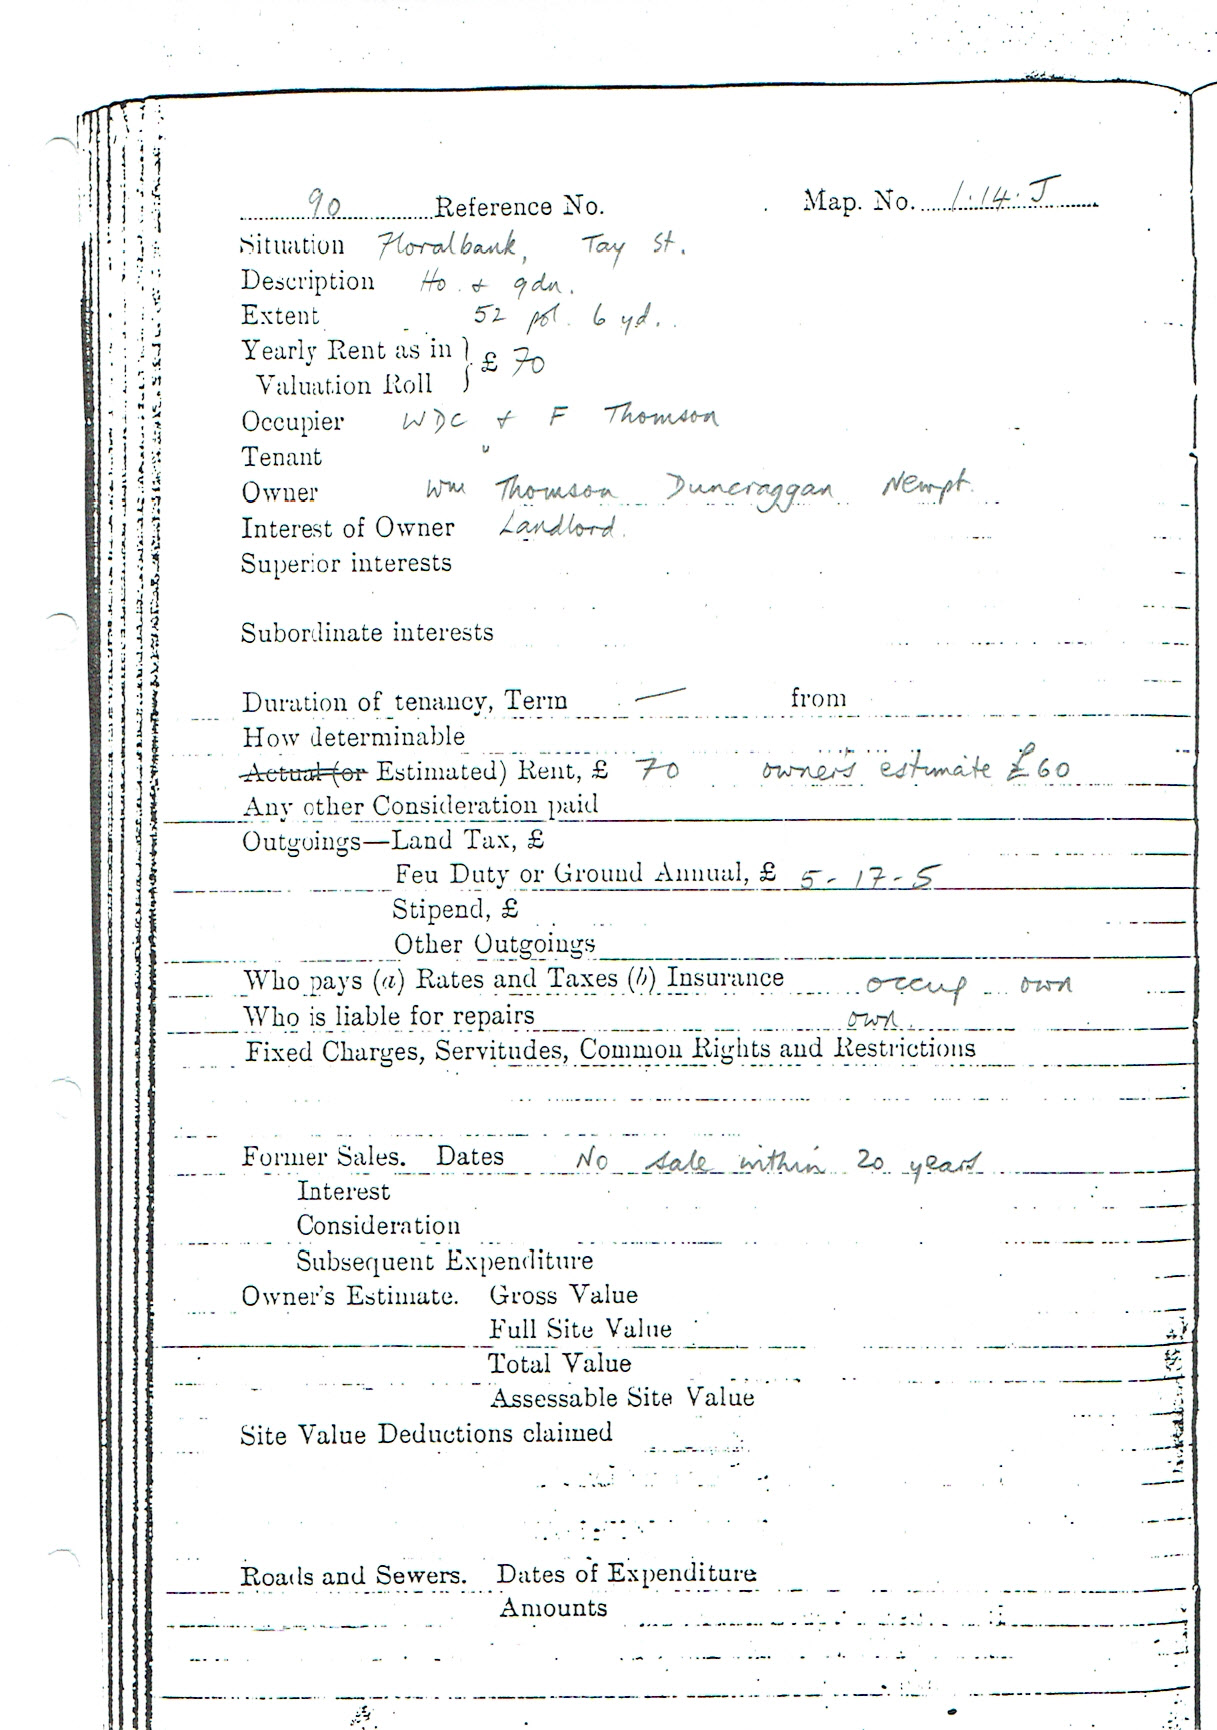 90 Reference No. Map. No. 1.14.J
Situation Floralbank, Tay St.
Description Ho. & gdn.
Extent 52 pol. 6 yd.
Yearly Rent as in } £ 70
Valuation Roll
Occupier WDC & F Thomson
Tenant "
Owner Wm Thomson Duncraggan Newpt.
Interest of Owner Landlord.
Superior interests
Subordinate interests
Duration of tenancy, Term — from
How determinable
Actual (or Estimated) Rent, £ 70 owner's estimate £60
Any other Consideration paid
Outgoings—Land Tax, £
Feu Duty or Ground Annual, £ 5-17-5
Stipend, £
Other Outgoings
Who pays (a) Rates and Taxes (b) Insurance occup own
Who is liable for repairs own.
Fixed Charges, Servitudes, Common Rights and Restrictions
Former Sales. Dates No sale within 20 years
Interest
Consideration
Subsequent Expenditure
Owner's Estimate. Gross Value
Full Site Value
Total Value
Assessable Site Value
Site Value Deductions claimed
Roads and Sewers. Dates of Expenditure
Amounts